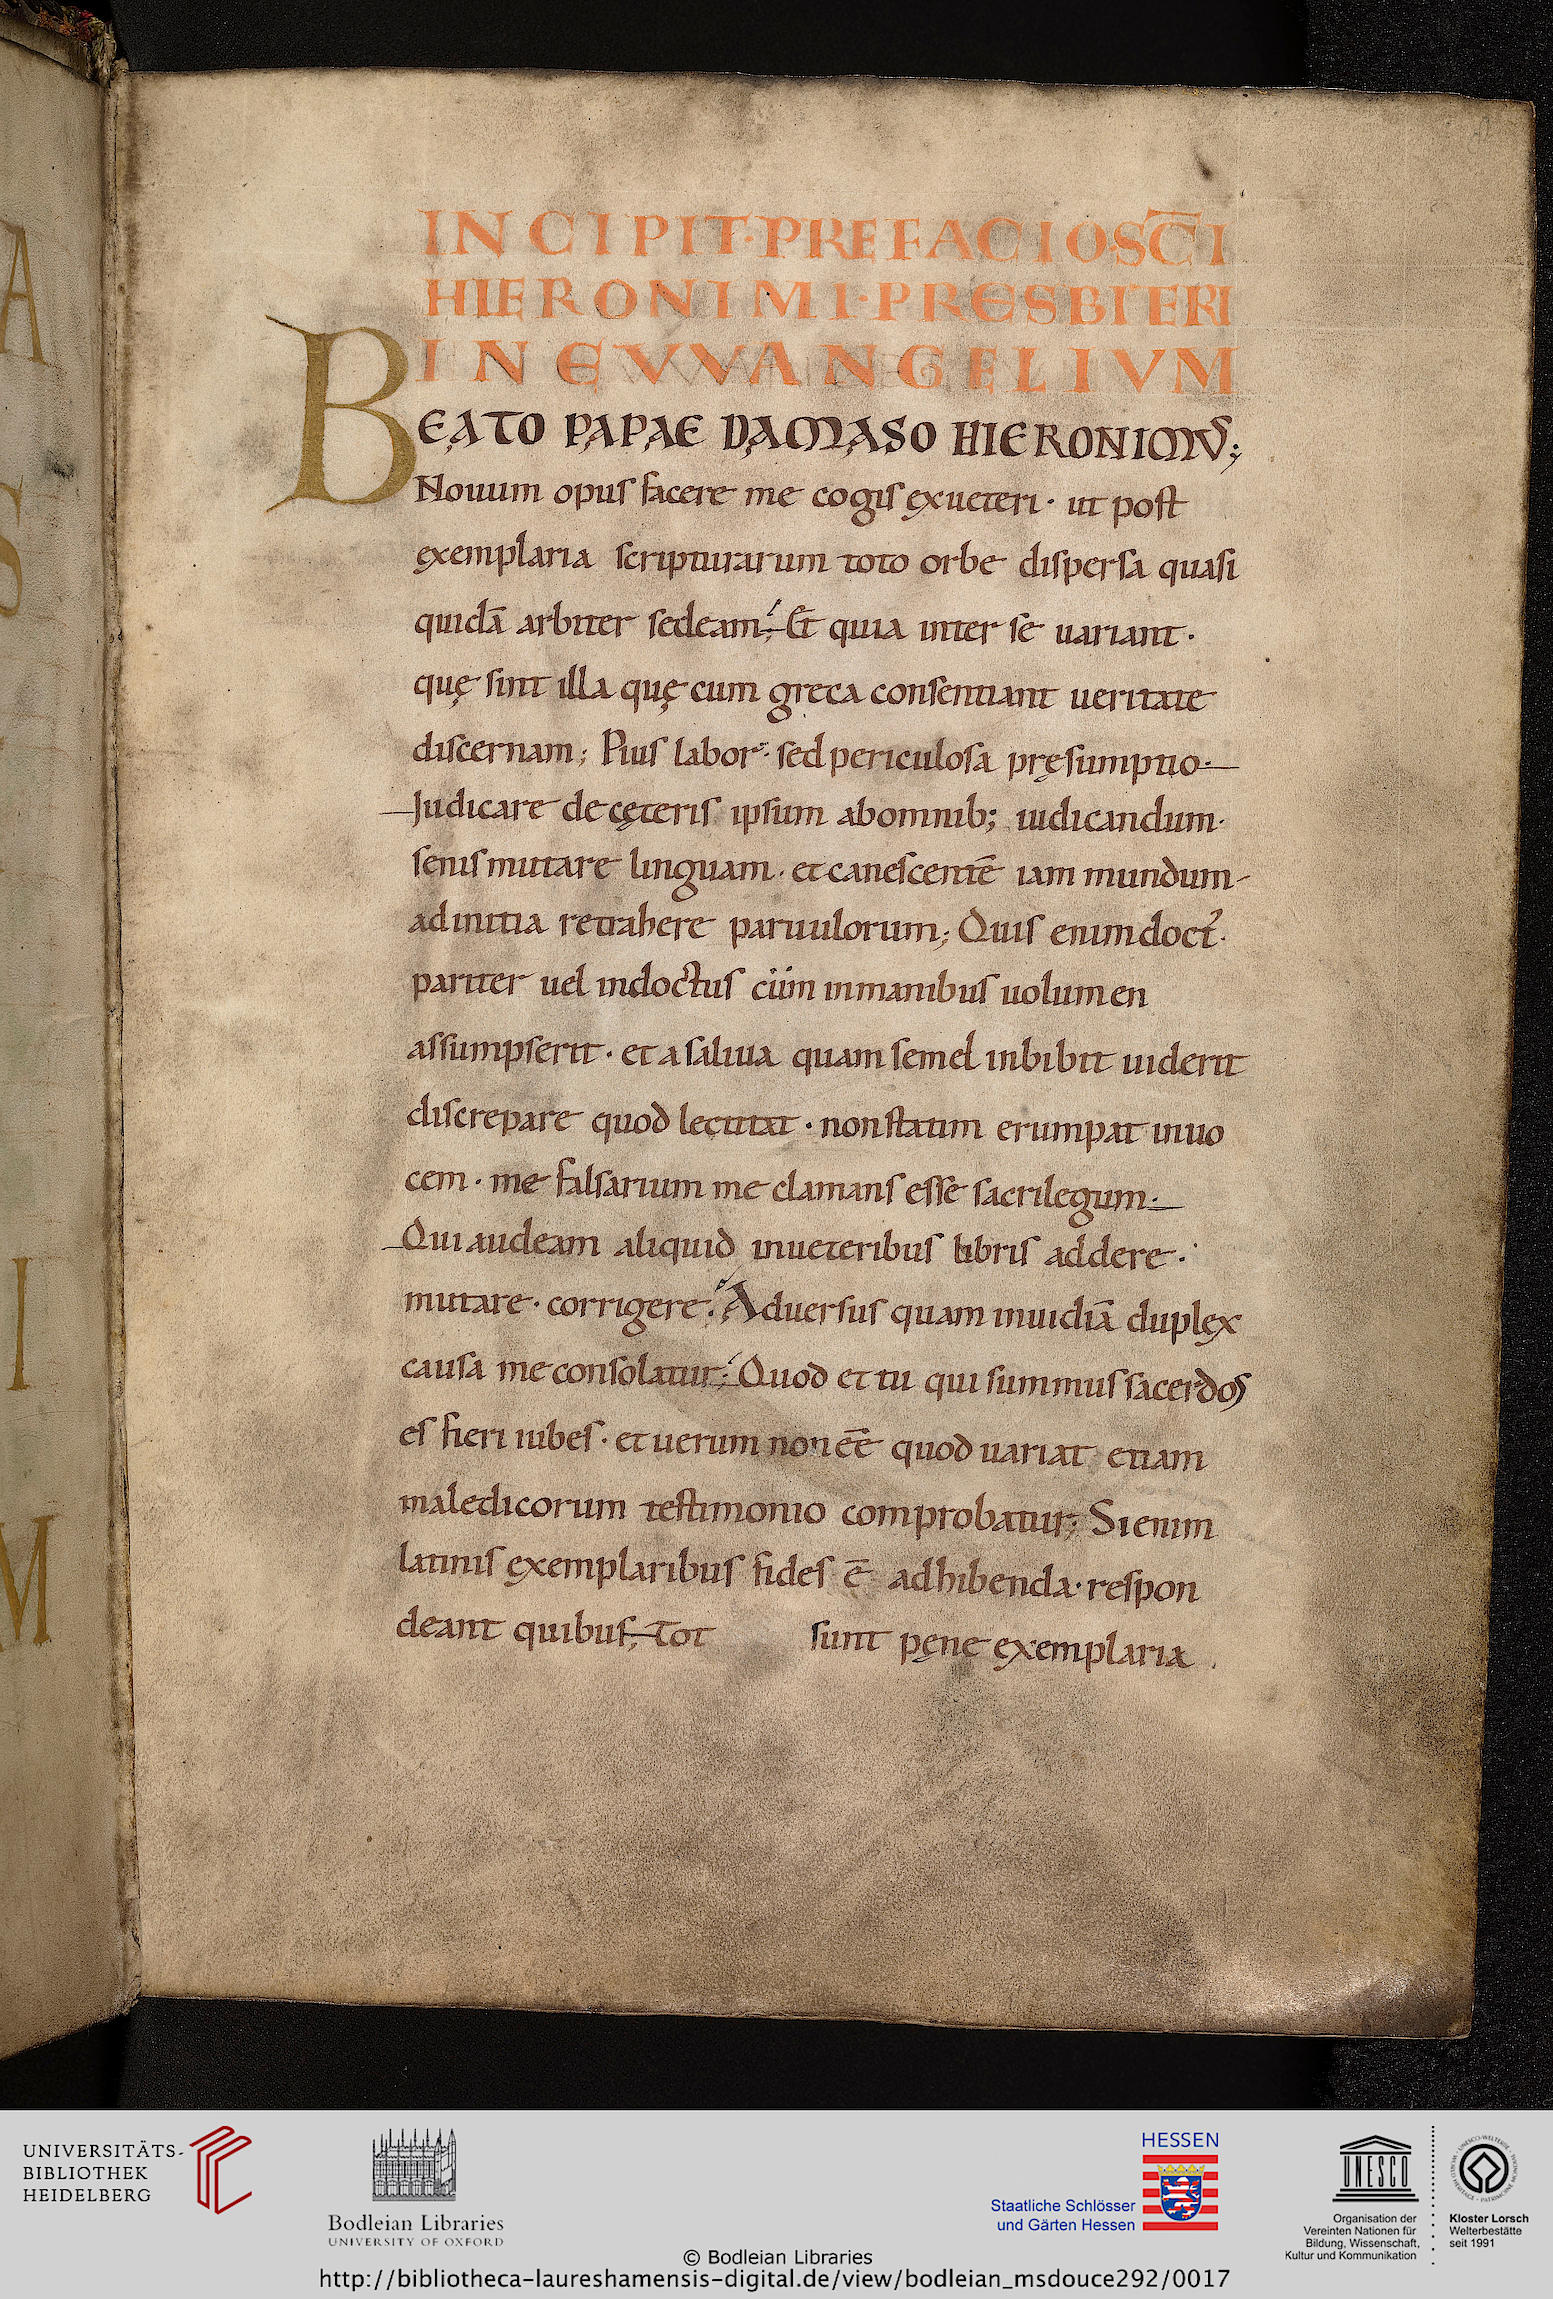 INCIPIT·PREFACIO·SC̄I
HIERONIMI·PRESBITERI
IN EVVANGELIVM
BEATO PAPAE DAMASO HIERONIMVS;
Nouum opus facere me cogis exueteri· ut post
exemplaria scripturarum toto orbe dispersa quasi
quidā arbiter sedeam; Et quia inter se uariant·
quę sint illa quę cum greca consentiant ueritate
discernam; Pius labor· sed periculosa pręsumptio·
Judicare de cęteris ipsum abomnib; iudicandum·
senis mutare linguam· et canescentē iam mundum
ad initia retrahere paruulorum; Quis enim doct᷒·
pariter uel indoctus cum inmanibus uolumen
assumpserit· et a saliua quam semel inbibit uiderit
discrepare quod lectitat· non statim erumpat inuo
cem· me falsarium me clamans esse sacrilegum·
Qui audeam aliquid inueteribus libris addere·
mutare· corrigere· Aduersus quam inuidiā duplex
causa me consolatur; Quod et tu qui summus sacerdos
es fieri iubes· et uerum non eē̄ quod uariat etiam
maledicorum testimonio comprobatur; Si enim
latinis exemplaribus fides ē adhibenda· respon
deant quibus; Tot sunt pęne exemplaria
UNIVERSITÄTS-
BIBLIOTHEK
HEIDELBERG
Bodleian Libraries
UNIVERSITY OF OXFORD
HESSEN
Staatliche Schlösser
und Gärten Hessen
UNESCO
Organisation der
Vereinten Nationen für
Bildung, Wissenschaft,
Kultur und Kommunikation
Kloster Lorsch
Welterbestätte
seit 1991
© Bodleian Libraries
http://bibliotheca-laureshamensis-digital.de/view/bodleian_msdouce292/0017